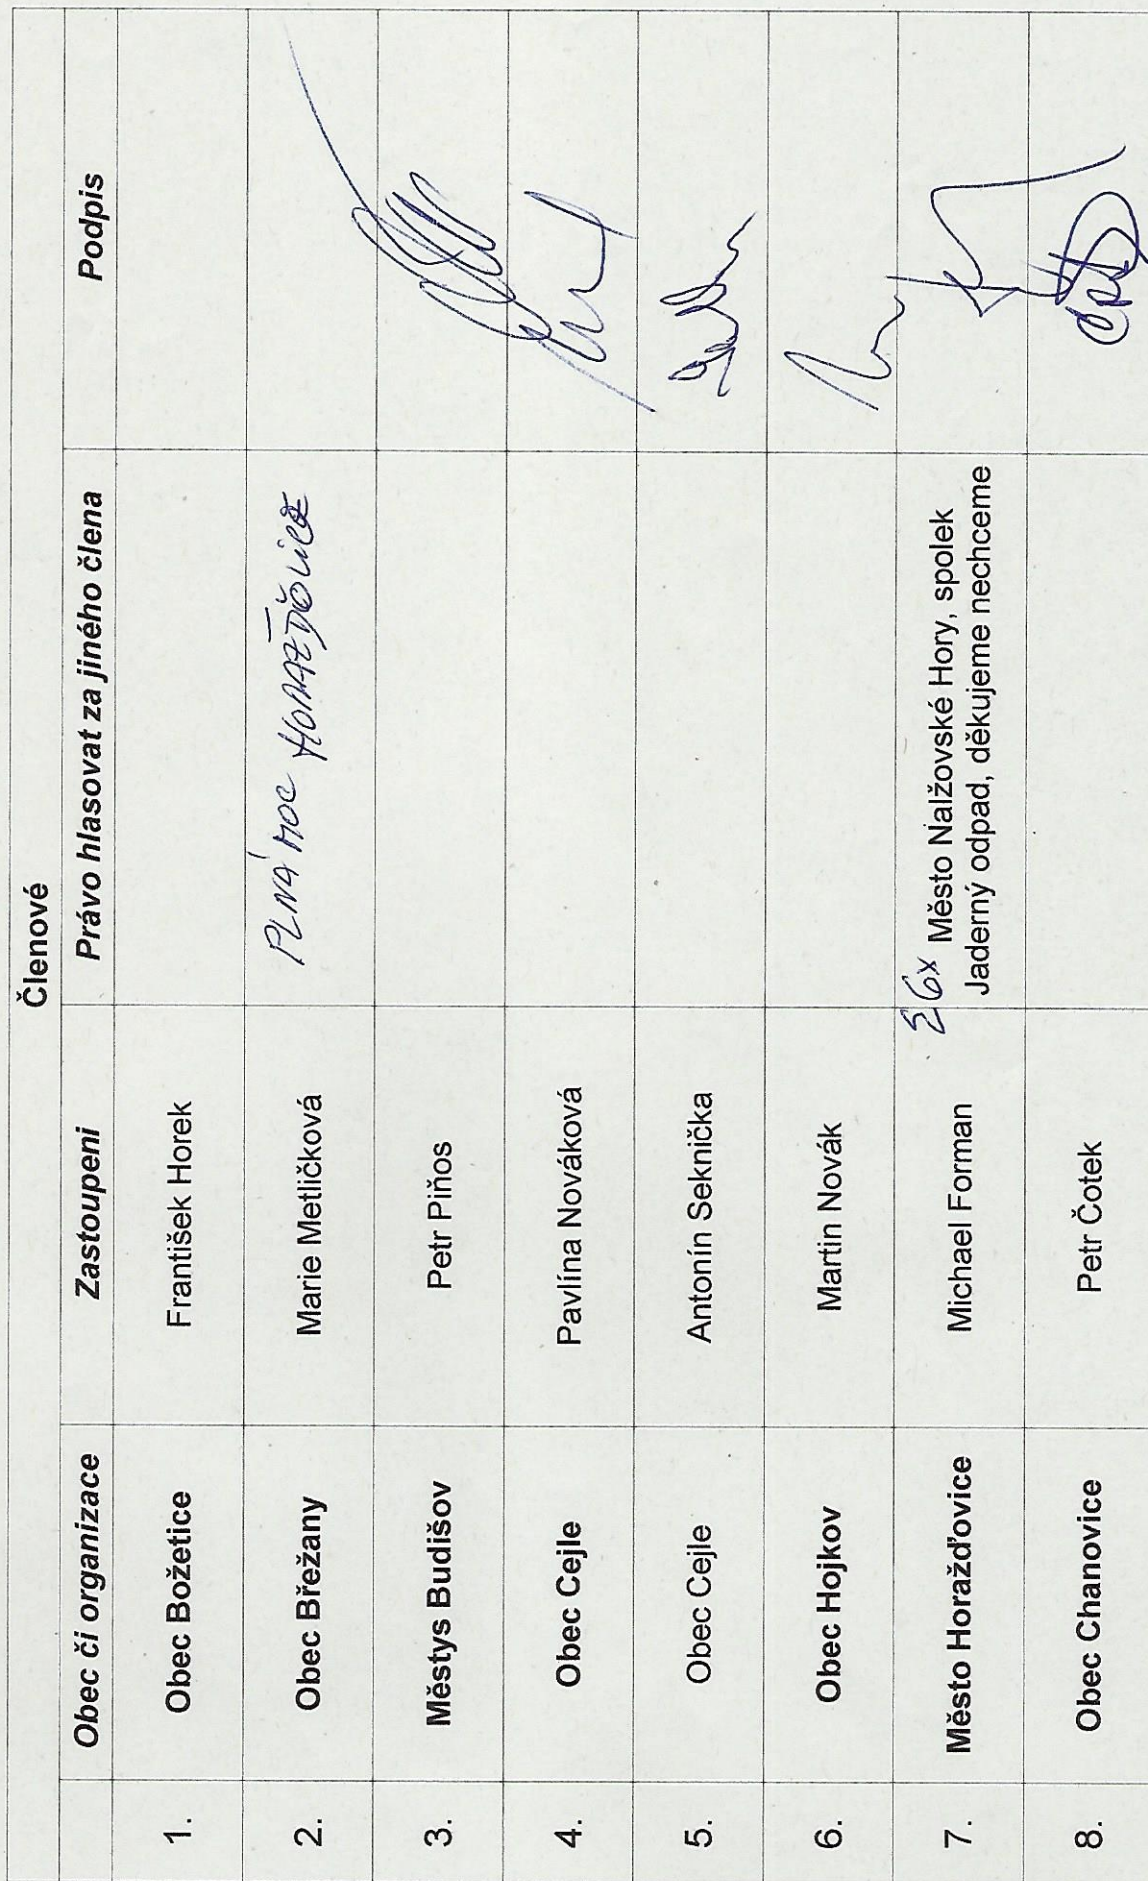 Členové
Obec či organizace Zastoupeni Právo hlasovat za jiného člena Podpis
1. Obec Božetice František Horek
2. Obec Břežany Marie Metličková PLNÁ MOC HORAŽĎOVICE
3. Městys Budišov Petr Piňos
4. Obec Cejle Pavlína Nováková
5. Obec Cejle Antonín Seknička
6. Obec Hojkov Martin Novák
7. Město Horažďovice Michael Forman Město Nalžovské Hory, spolek
Jaderný odpad, děkujeme nechceme
8. Obec Chanovice Petr Čotek